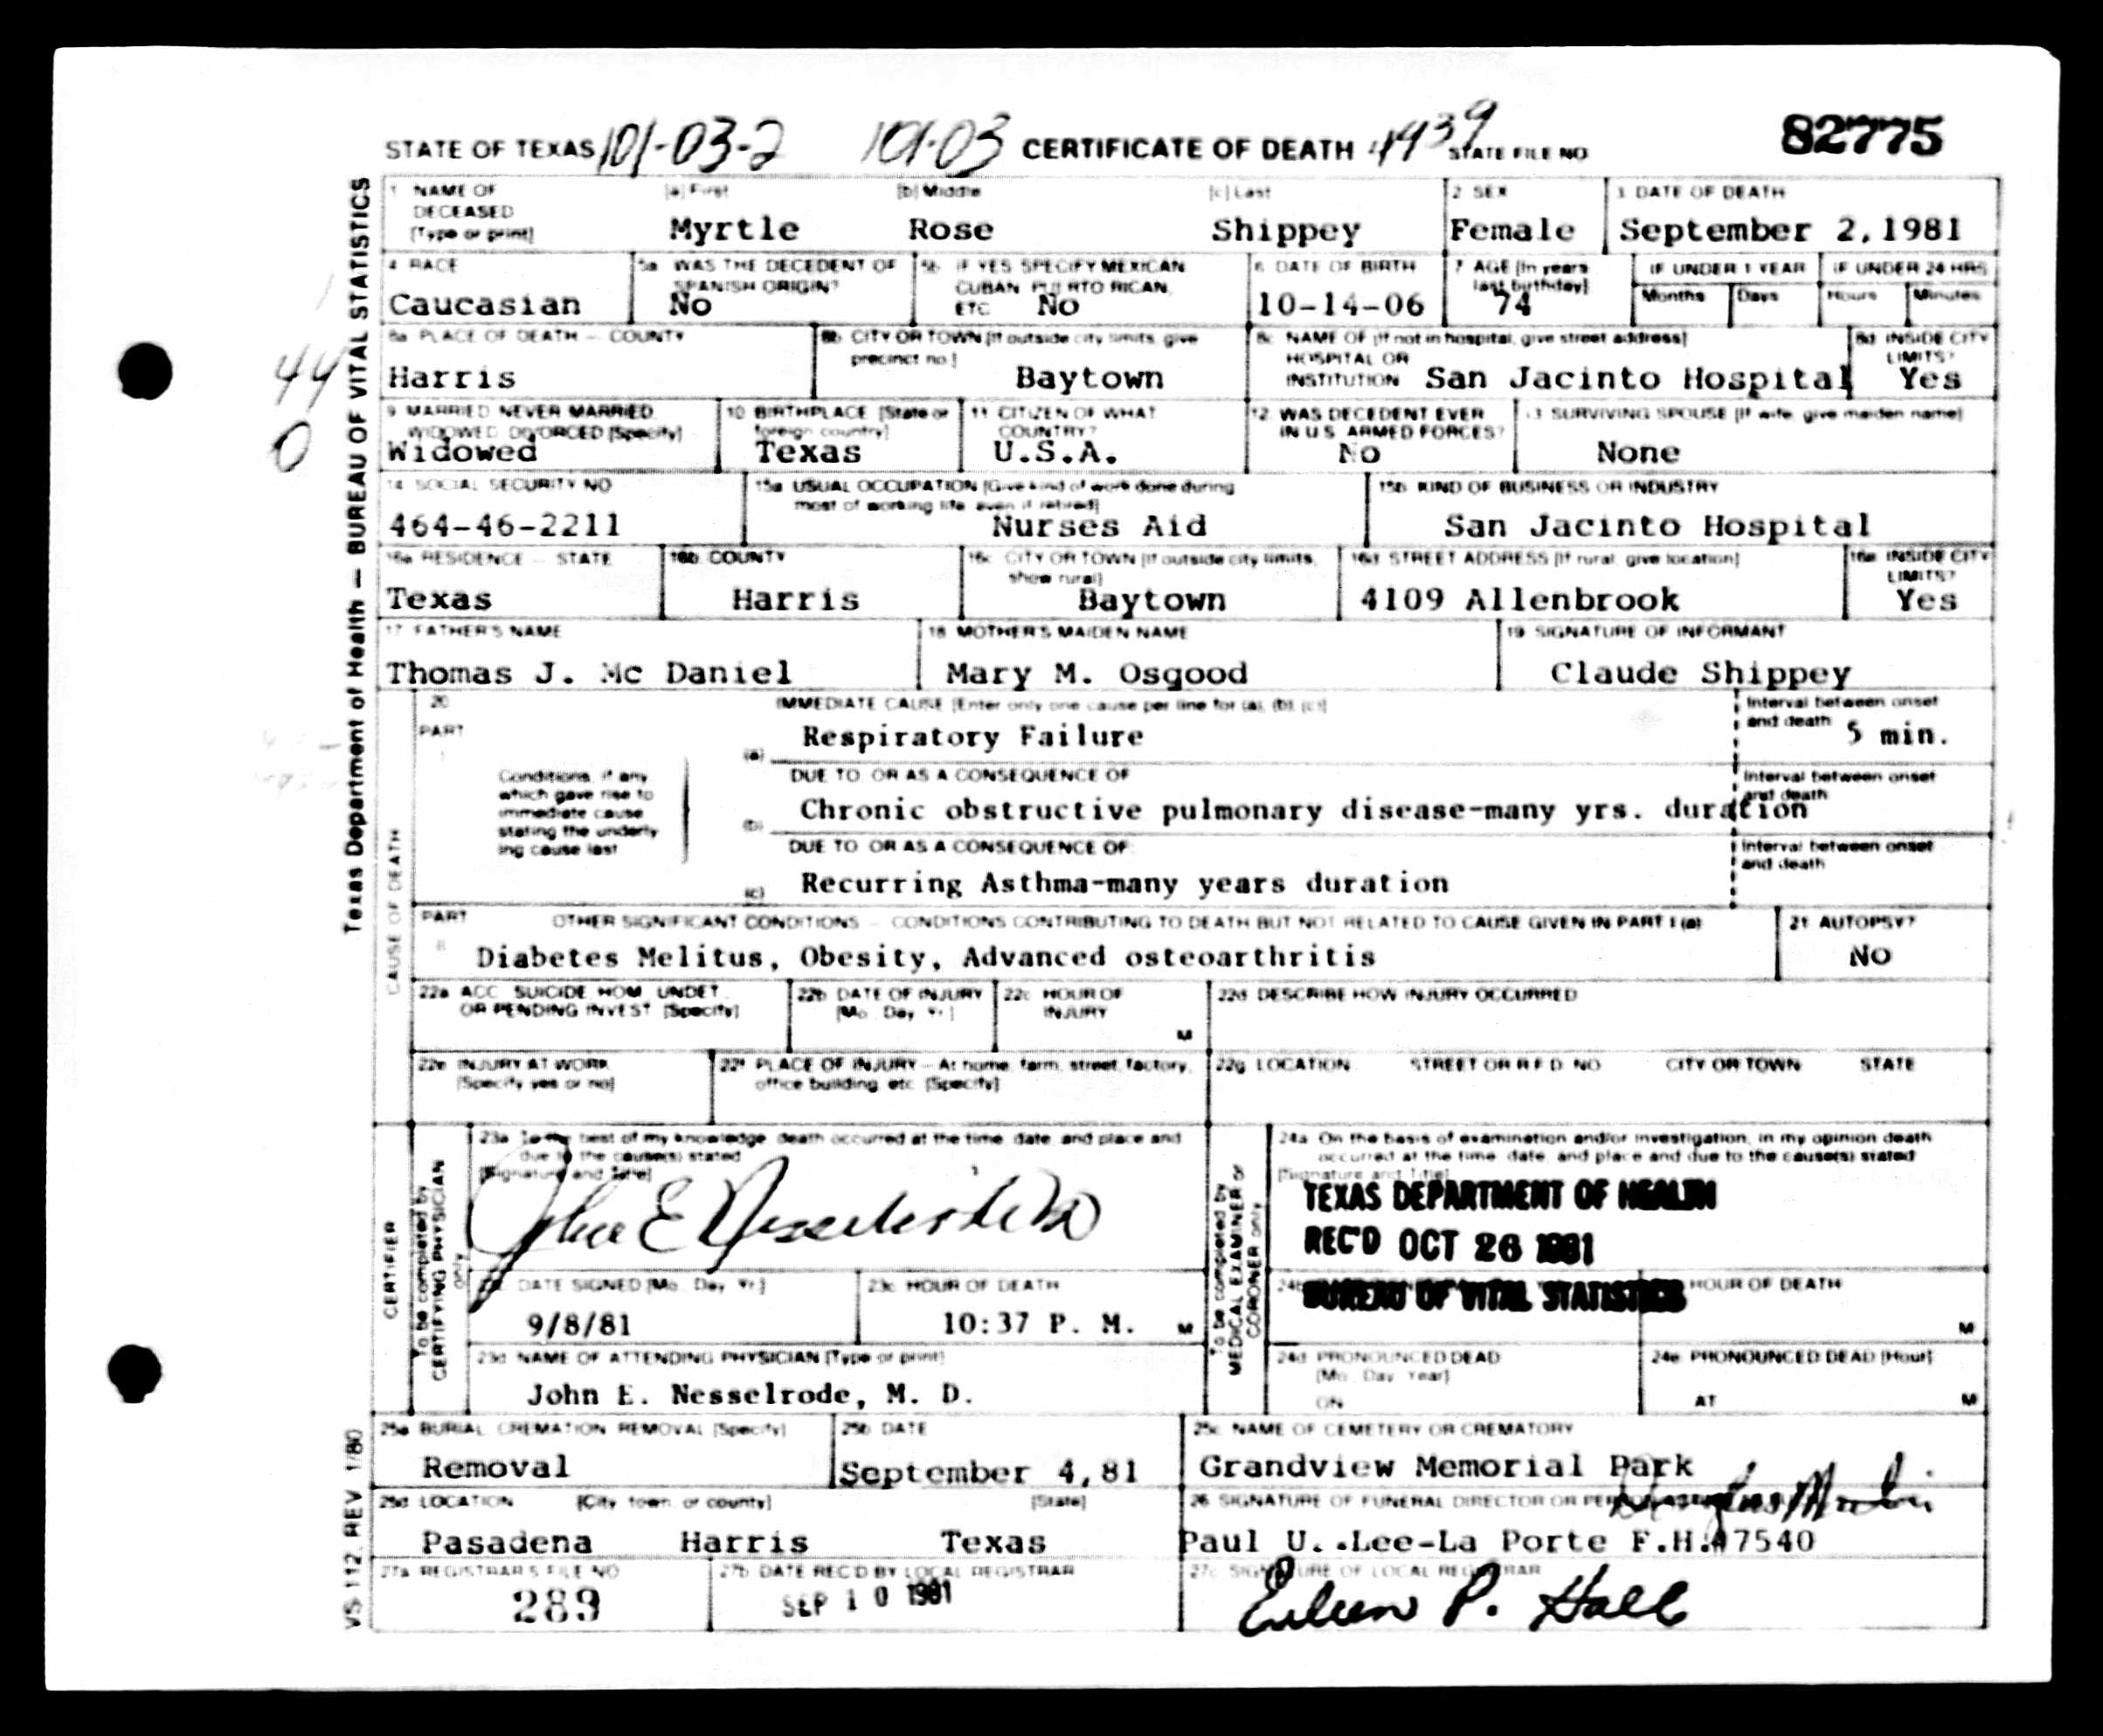 STATE OF TEXAS 101-03-2 101-03 CERTIFICATE OF DEATH 4439 STATE FILE NO 82775
Texas Department of Health — BUREAU OF VITAL STATISTICS
44
0
1 NAME OF DECEASED [Type or print] [a] First [b] Middle [c] Last 2 SEX 3 DATE OF DEATH
Myrtle Rose Shippey Female September 2,1981
4 RACE 5a WAS THE DECEDENT OF SPANISH ORIGIN? 5b IF YES SPECIFY MEXICAN CUBAN PUERTO RICAN, ETC 6 DATE OF BIRTH 7 AGE [In years last birthday] IF UNDER 1 YEAR IF UNDER 24 HRS
Months Days Hours Minutes
Caucasian No No 10-14-06 74
8a PLACE OF DEATH — COUNTY 8b CITY OR TOWN [If outside city limits, give precinct no.] 8c NAME OF [If not in hospital, give street address] HOSPITAL OR INSTITUTION 8d INSIDE CITY LIMITS?
Harris Baytown San Jacinto Hospital Yes
9 MARRIED NEVER MARRIED WIDOWED DIVORCED [Specify] 10 BIRTHPLACE [State or foreign country] 11 CITIZEN OF WHAT COUNTRY? 12 WAS DECEDENT EVER IN U.S. ARMED FORCES? 13 SURVIVING SPOUSE [If wife, give maiden name]
Widowed Texas U.S.A. No None
14 SOCIAL SECURITY NO 15a USUAL OCCUPATION [Give kind of work done during most of working life even if retired] 15b KIND OF BUSINESS OR INDUSTRY
464-46-2211 Nurses Aid San Jacinto Hospital
16a RESIDENCE — STATE 16b COUNTY 16c CITY OR TOWN [If outside city limits, show rural] 16d STREET ADDRESS [If rural, give location] 16e INSIDE CITY LIMITS?
Texas Harris Baytown 4109 Allenbrook Yes
17 FATHER'S NAME 18 MOTHER'S MAIDEN NAME 19 SIGNATURE OF INFORMANT
Thomas J. Mc Daniel Mary M. Osgood Claude Shippey
CAUSE OF DEATH
20 IMMEDIATE CAUSE [Enter only one cause per line for (a), (b), (c)] Interval between onset and death
PART
(a) Respiratory Failure 5 min.
Conditions, if any which gave rise to immediate cause stating the underlying cause last
DUE TO OR AS A CONSEQUENCE OF Interval between onset and death
(b) Chronic obstructive pulmonary disease-many yrs. duration
DUE TO OR AS A CONSEQUENCE OF Interval between onset and death
(c) Recurring Asthma-many years duration
PART II OTHER SIGNIFICANT CONDITIONS — CONDITIONS CONTRIBUTING TO DEATH BUT NOT RELATED TO CAUSE GIVEN IN PART I (a) 21 AUTOPSY?
Diabetes Melitus, Obesity, Advanced osteoarthritis No
22a ACC SUICIDE HOM UNDET OR PENDING INVEST [Specify] 22b DATE OF INJURY [Mo Day Yr] 22c HOUR OF INJURY M 22d DESCRIBE HOW INJURY OCCURRED
22e INJURY AT WORK [Specify yes or no] 22f PLACE OF INJURY — At home, farm, street, factory, office building, etc [Specify] 22g LOCATION STREET OR R F D NO CITY OR TOWN STATE
CERTIFIER
To be completed by CERTIFYING PHYSICIAN only
23a To the best of my knowledge death occurred at the time, date, and place and due to the cause(s) stated
[Signature and Title]
John E Nesselrode MD
DATE SIGNED [Mo Day Yr] 23c HOUR OF DEATH
9/8/81 10:37 P. M. M
23d NAME OF ATTENDING PHYSICIAN [Type or print]
John E. Nesselrode, M. D.
To be completed by MEDICAL EXAMINER or CORONER only
24a On the basis of examination and/or investigation, in my opinion death occurred at the time, date, and place and due to the cause(s) stated
[Signature and Title]
TEXAS DEPARTMENT OF HEALTH
REC'D OCT 26 1981
BUREAU OF VITAL STATISTICS
24b HOUR OF DEATH M
24d PRONOUNCED DEAD [Mo Day Year] ON 24e PRONOUNCED DEAD [Hour] AT M
25a BURIAL CREMATION REMOVAL [Specify] 25b DATE 25c NAME OF CEMETERY OR CREMATORY
Removal September 4,81 Grandview Memorial Park
25d LOCATION [City, town, or county] [State] 26 SIGNATURE OF FUNERAL DIRECTOR OR
Pasadena Harris Texas Paul U. Lee-La Porte F.H. #7540
27a REGISTRAR'S FILE NO 27b DATE REC'D BY LOCAL REGISTRAR 27c SIGNATURE OF LOCAL REGISTRAR
289 SEP 10 1981 Eileen P. Hall
VS 112, REV 1/80